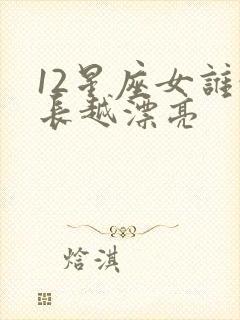 12星座女誰
長越漂亮
焓淇